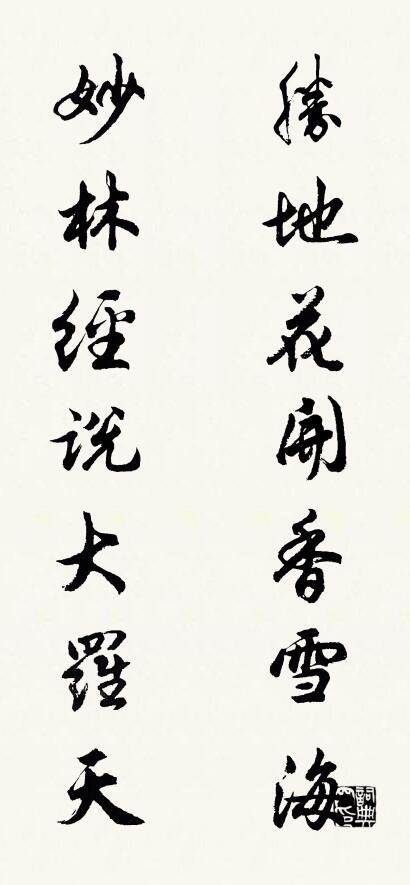 勝地花開香雪海
妙林經說大羅天